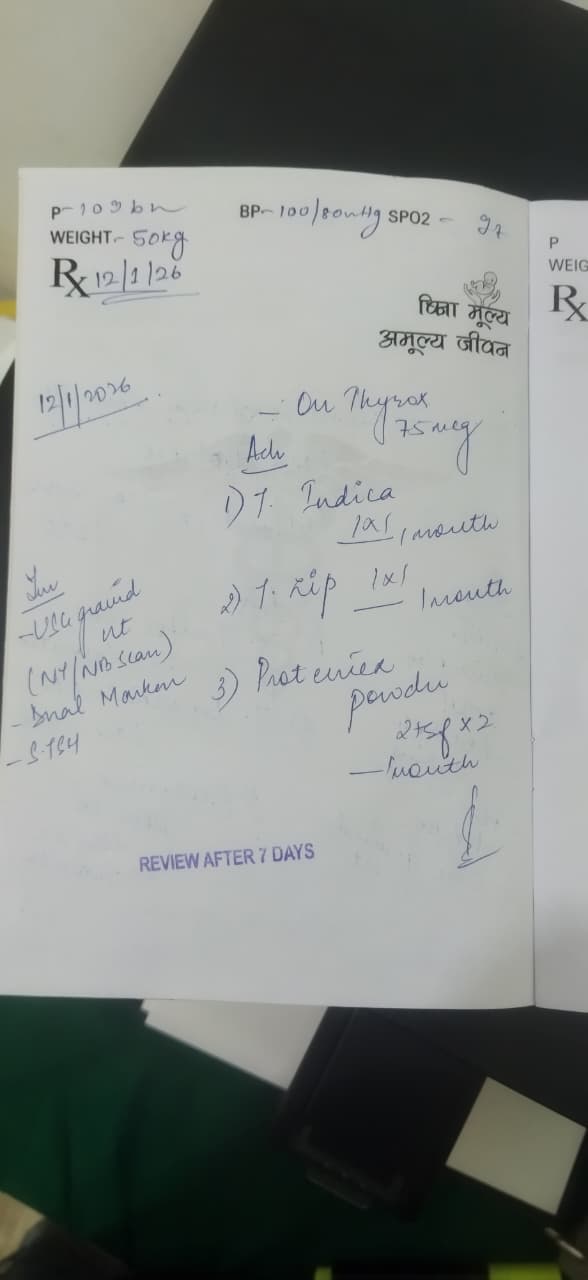 P-109bn
BP-100/80mmHg SPO2 - 97
WEIGHT.- 50kg
Rx 12/1/26
बिना मूल्य
अमूल्य जीवन
12/1/2026
- On Thyrox
75mcg
Adv
1) T. Indica
1x1, 1month
2) T. Zip 1x1 1month
3)
powder
2tsf x 2
- 1month
Inv
- USG gravid
ut
(NT/NB Scan)
- Dual Marker
- S.TSH
REVIEW AFTER 7 DAYS
P
WEIG
Rx